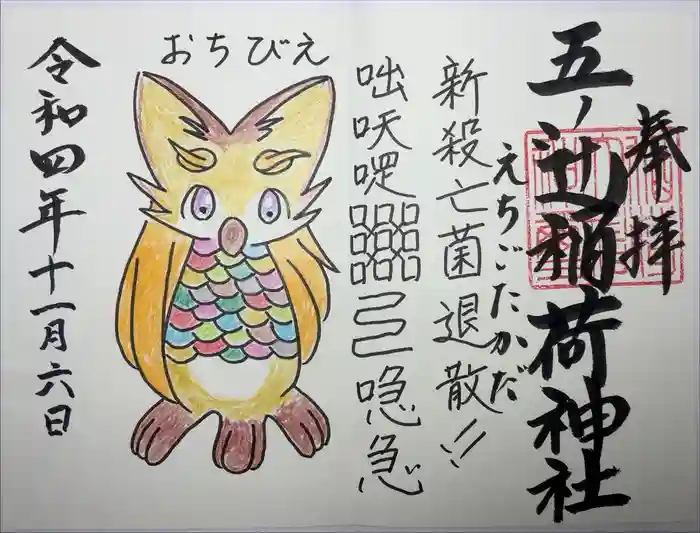 奉拝
五ノ辻稲荷神社
えちごたかだ
新殺亡菌退散!!
咄吠㖏
唸急
おちびえ
令和四年十一月六日